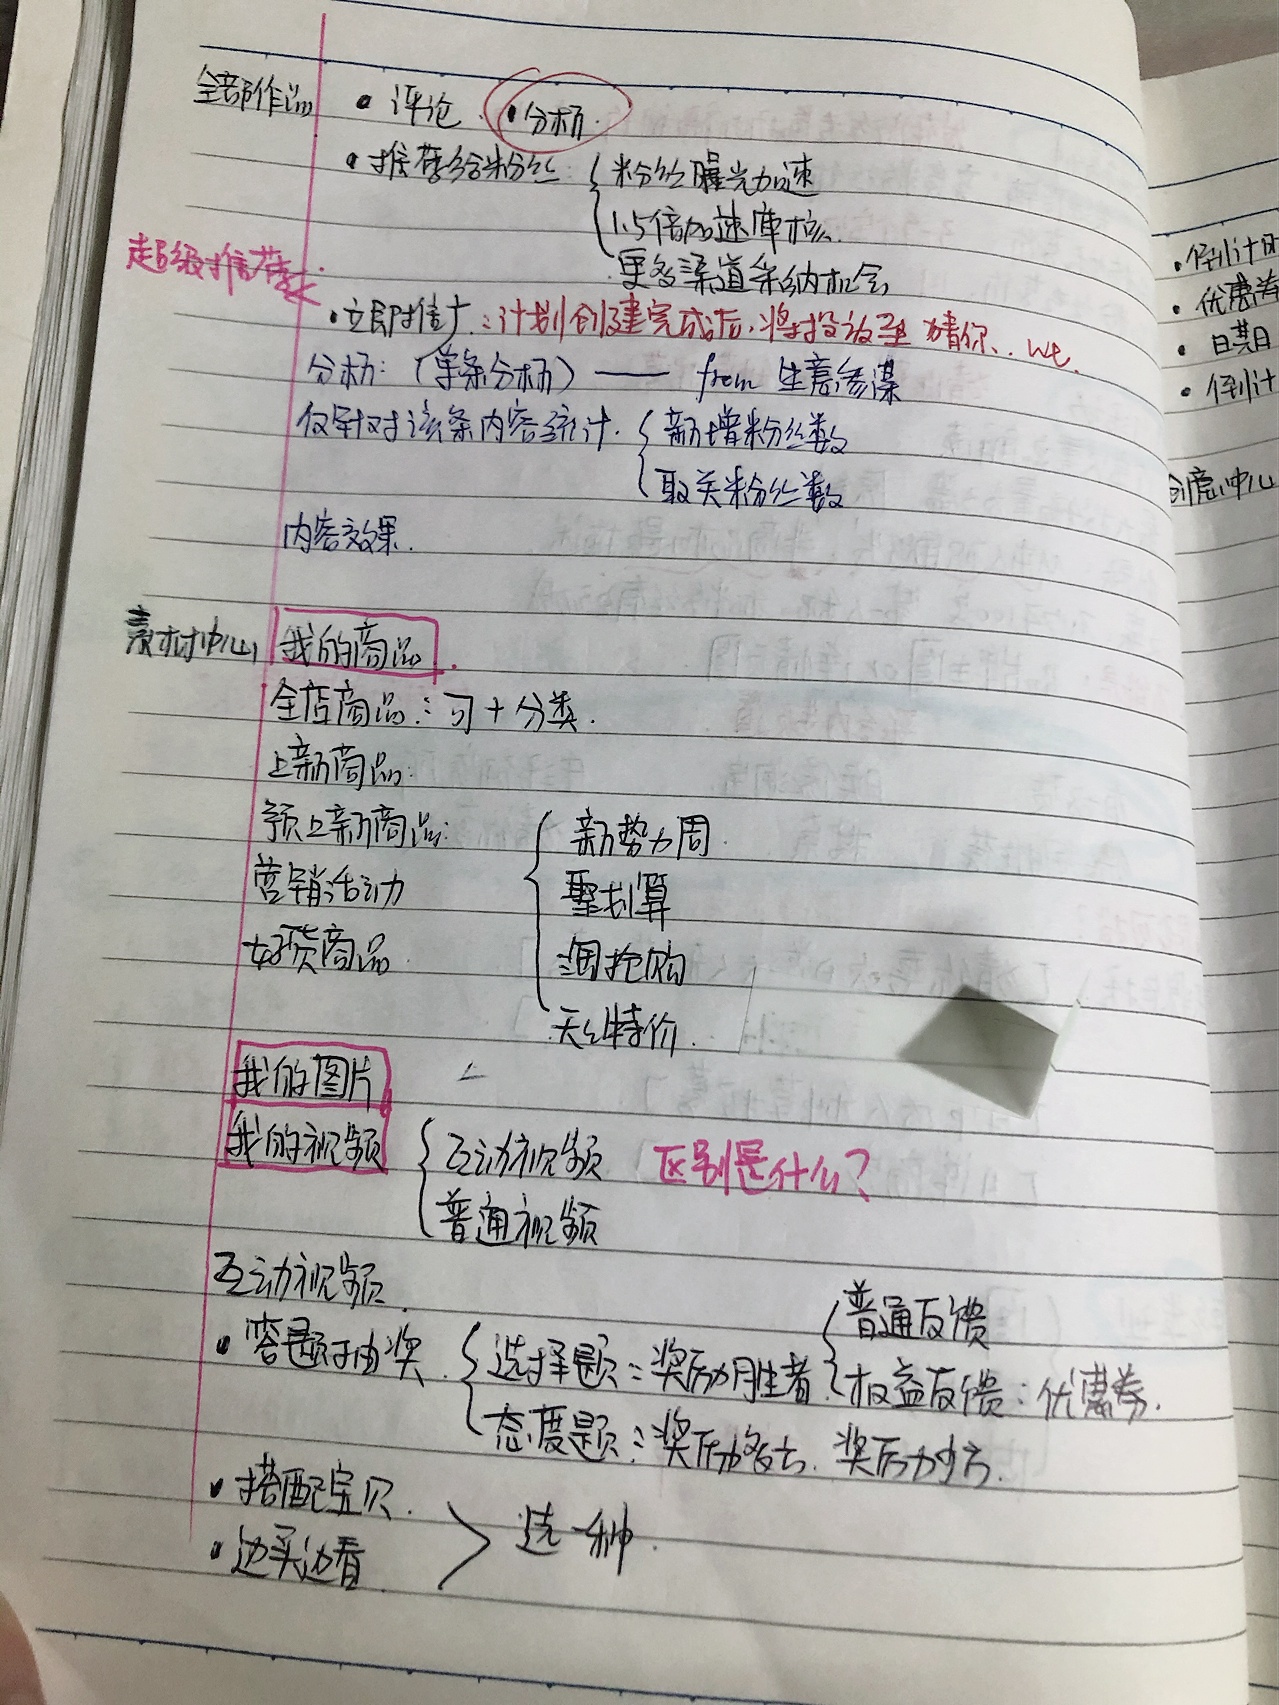 全部作品 • 评论. • 分析.
• 推荐给粉丝: { 粉丝曝光加速
1.5倍加速审核.
更多渠道采纳机会
超级推荐.
• 立即推广: 计划创建完成后, 将投放至 猜你.. we.
分析: (单条分析) —— from 生意参谋
仅针对该条内容统计. { 新增粉丝数
取关粉丝数
内容效果.
素材中心, 我的商品.
全店商品: 可+分类.
上新商品:
预上新商品: { 新势力周.
营销活动 聚划算
好货商品 淘抢购
天天特价.
我的图片
我的视频 { 互动视频 区别是什么?
普通视频
互动视频.
• 答题抽奖. { 选择题: 奖励胜者. { 普通反馈
权益反馈: 优惠券.
态度题: 奖励多方. 奖励少方.
• 搭配宝贝.
• 边买边看 > 选一种.
• 倒计时
• 优惠券
• 日期
• 倒计
创意中心